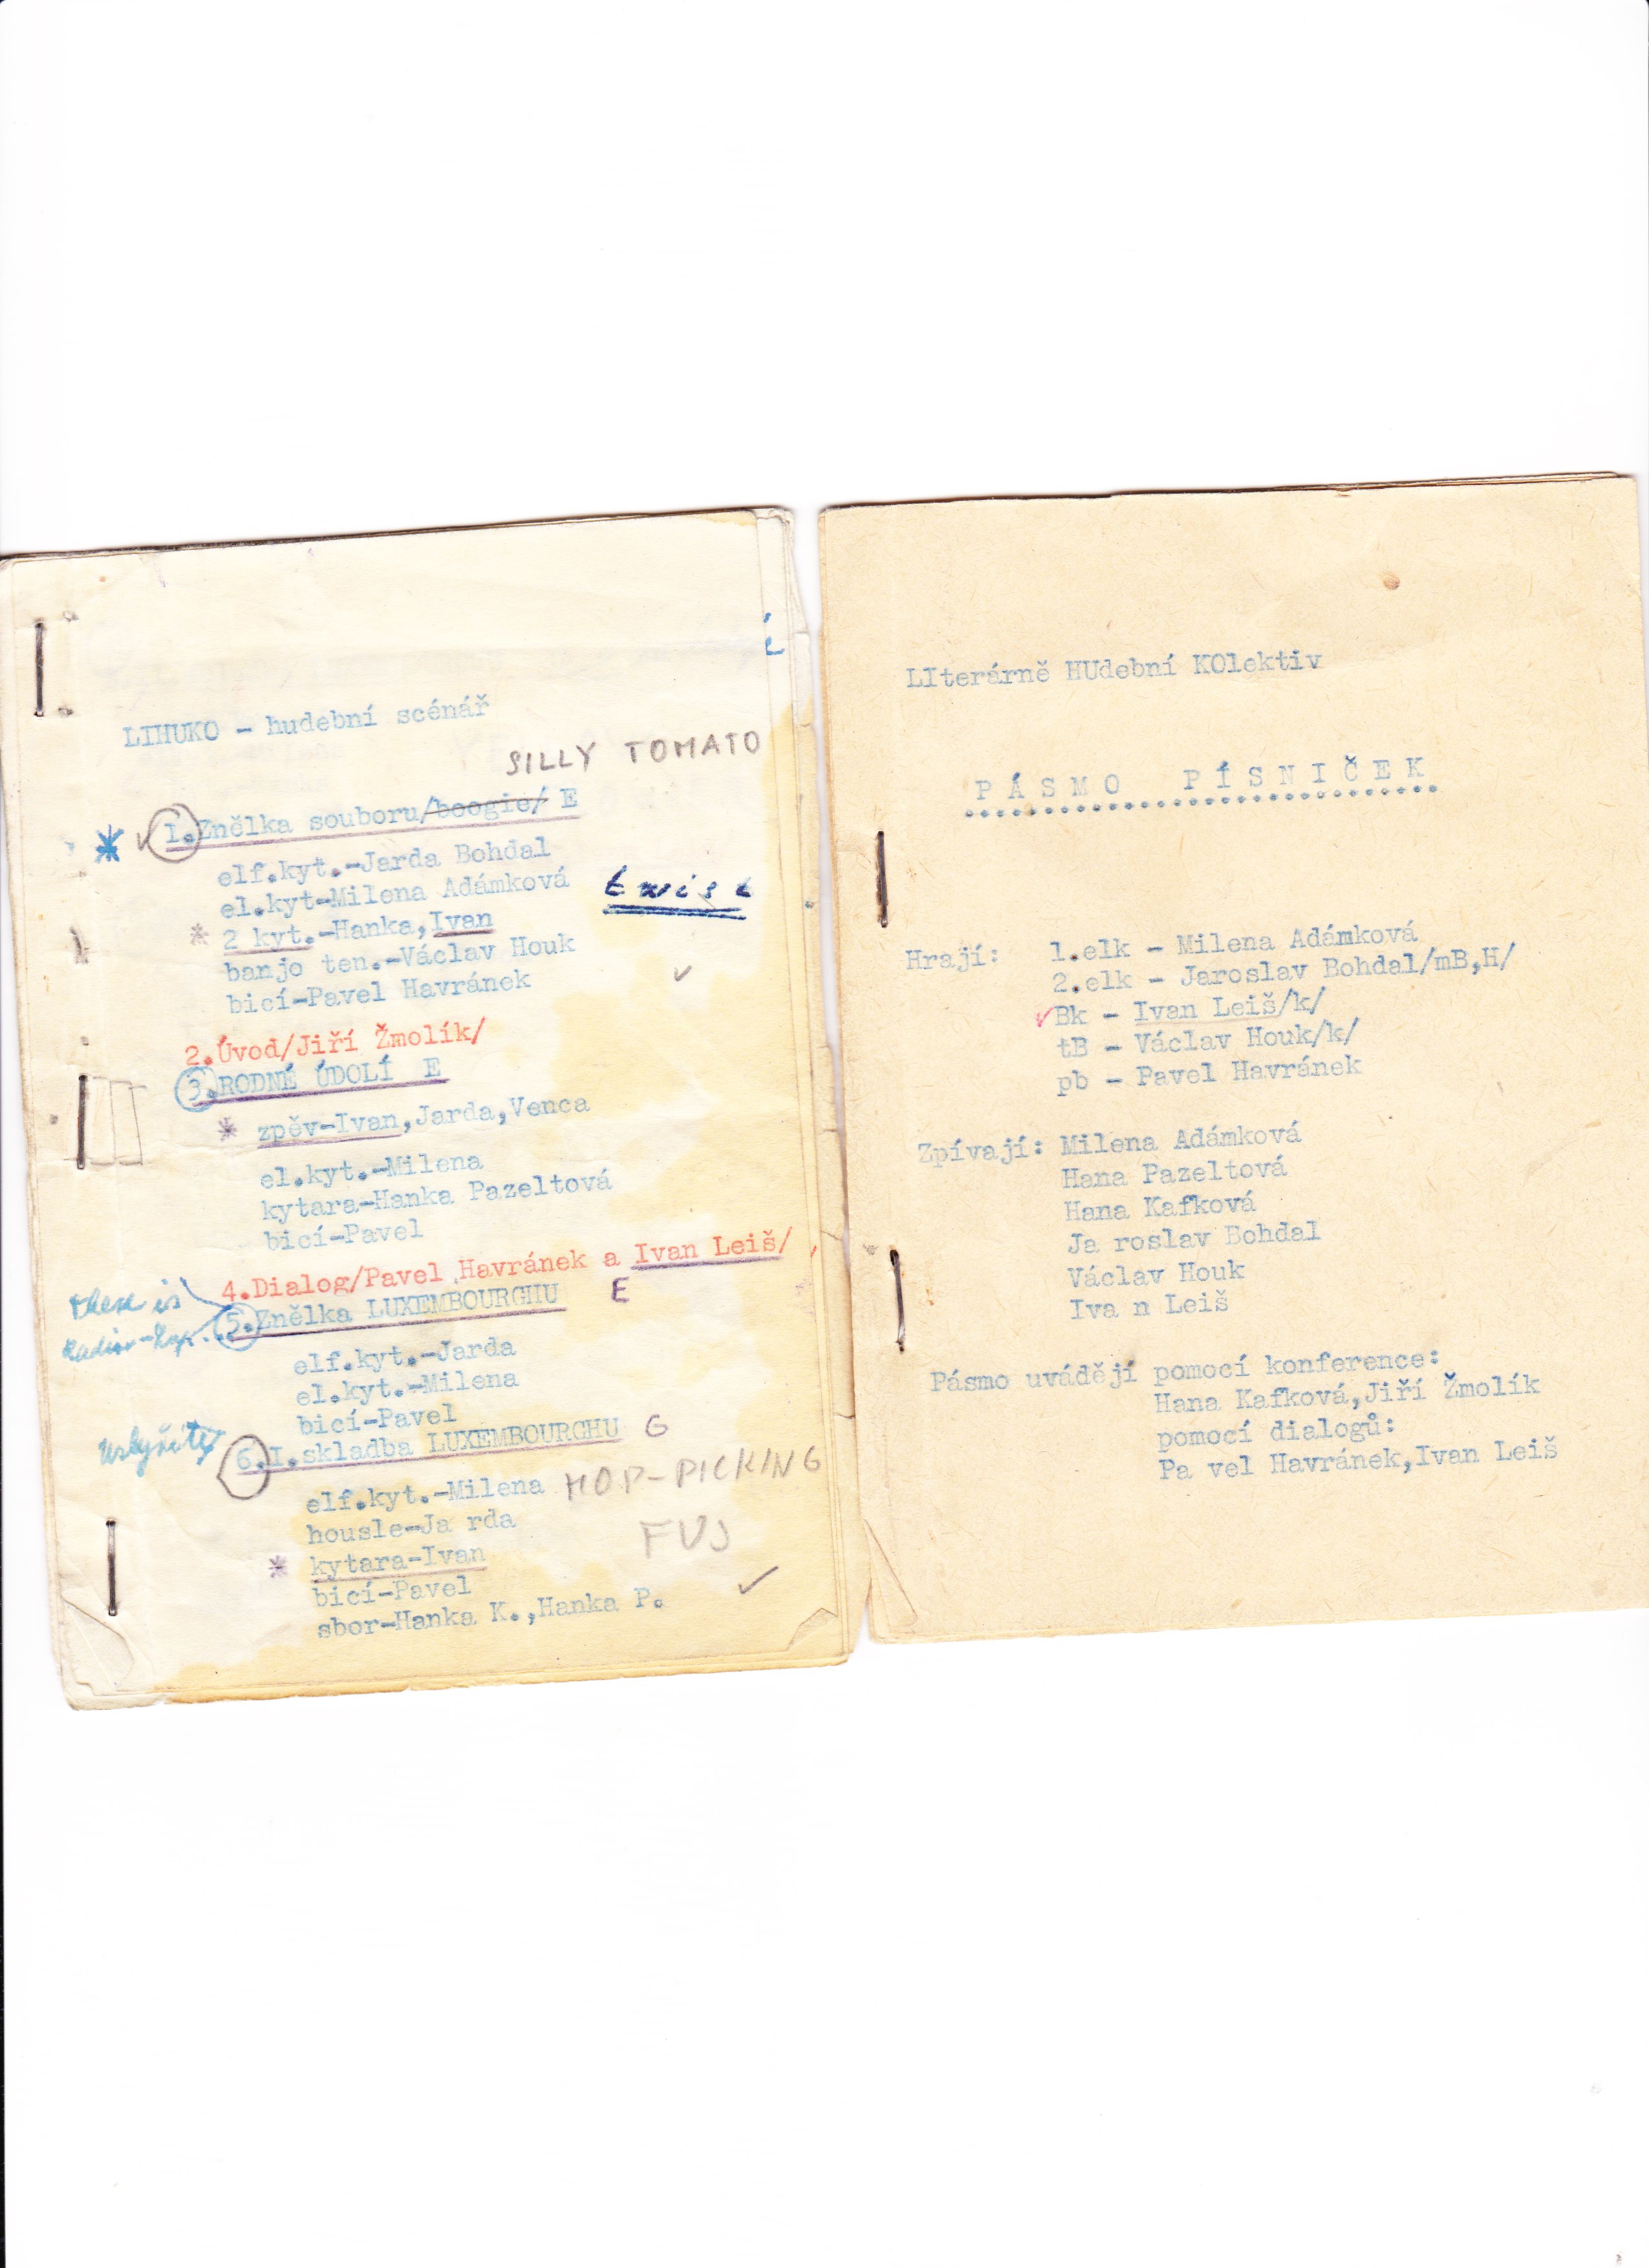 LIHUKO - hudební scénář
SILLY TOMATO
1.Znělka souboru/boogie/ E
elf.kyt.-Jarda Bohdal
el.kyt-Milena Adámková
twist
* 2 kyt.-Hanka,Ivan
banjo ten.-Václav Houk
bicí-Pavel Havránek
2.Úvod/Jiří Žmolík/
3.RODNÉ ÚDOLÍ E
* zpěv-Ivan,Jarda,Venca
el.kyt.-Milena
kytara-Hanka Pazeltová
bicí-Pavel
4.Dialog/Pavel Havránek a Ivan Leiš/
there is
5.Znělka LUXEMBOURGHU E
elf.kyt.-Jarda
el.kyt.-Milena
bicí-Pavel
6.I.skladba LUXEMBOURGHU G
elf.kyt.-Milena HOP-PICKING
housle-Ja rda FUJ
* kytara-Ivan
bicí-Pavel
sbor-Hanka K.,Hanka P.
LIterárně HUdební KOlektiv
PÁSMO PÍSNIČEK
Hrají: 1.elk - Milena Adámková
2.elk - Jaroslav Bohdal/mB,H/
Bk - Ivan Leiš/k/
tB - Václav Houk/k/
pb - Pavel Havránek
Zpívají: Milena Adámková
Hana Pazeltová
Hana Kafková
Ja roslav Bohdal
Václav Houk
Iva n Leiš
Pásmo uvádějí pomocí konference:
Hana Kafková,Jiří Žmolík
pomocí dialogů:
Pa vel Havránek,Ivan Leiš